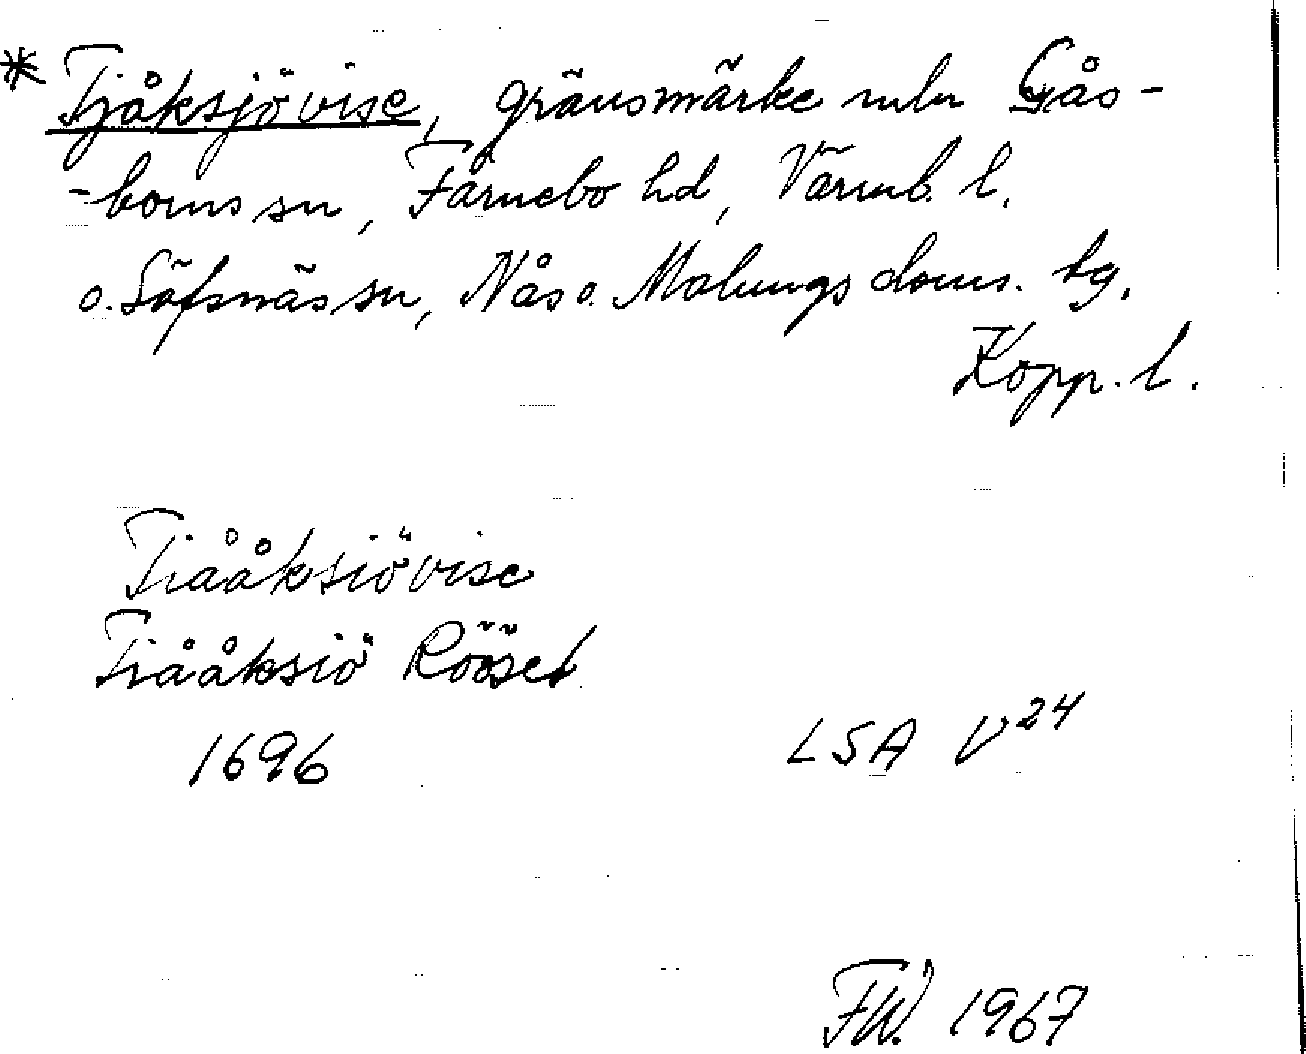 * Tjåksjövise, gränsmärke mln Gås-
-borns sn, Färnebo hd, Värmb. l.
o. Säfsnäs sn, Nås o. Malungs doms. tg,
Kopp. l.
Tiååksiövise
Tiååksiö Rööset
1696 LSA V24
F.W. 1967